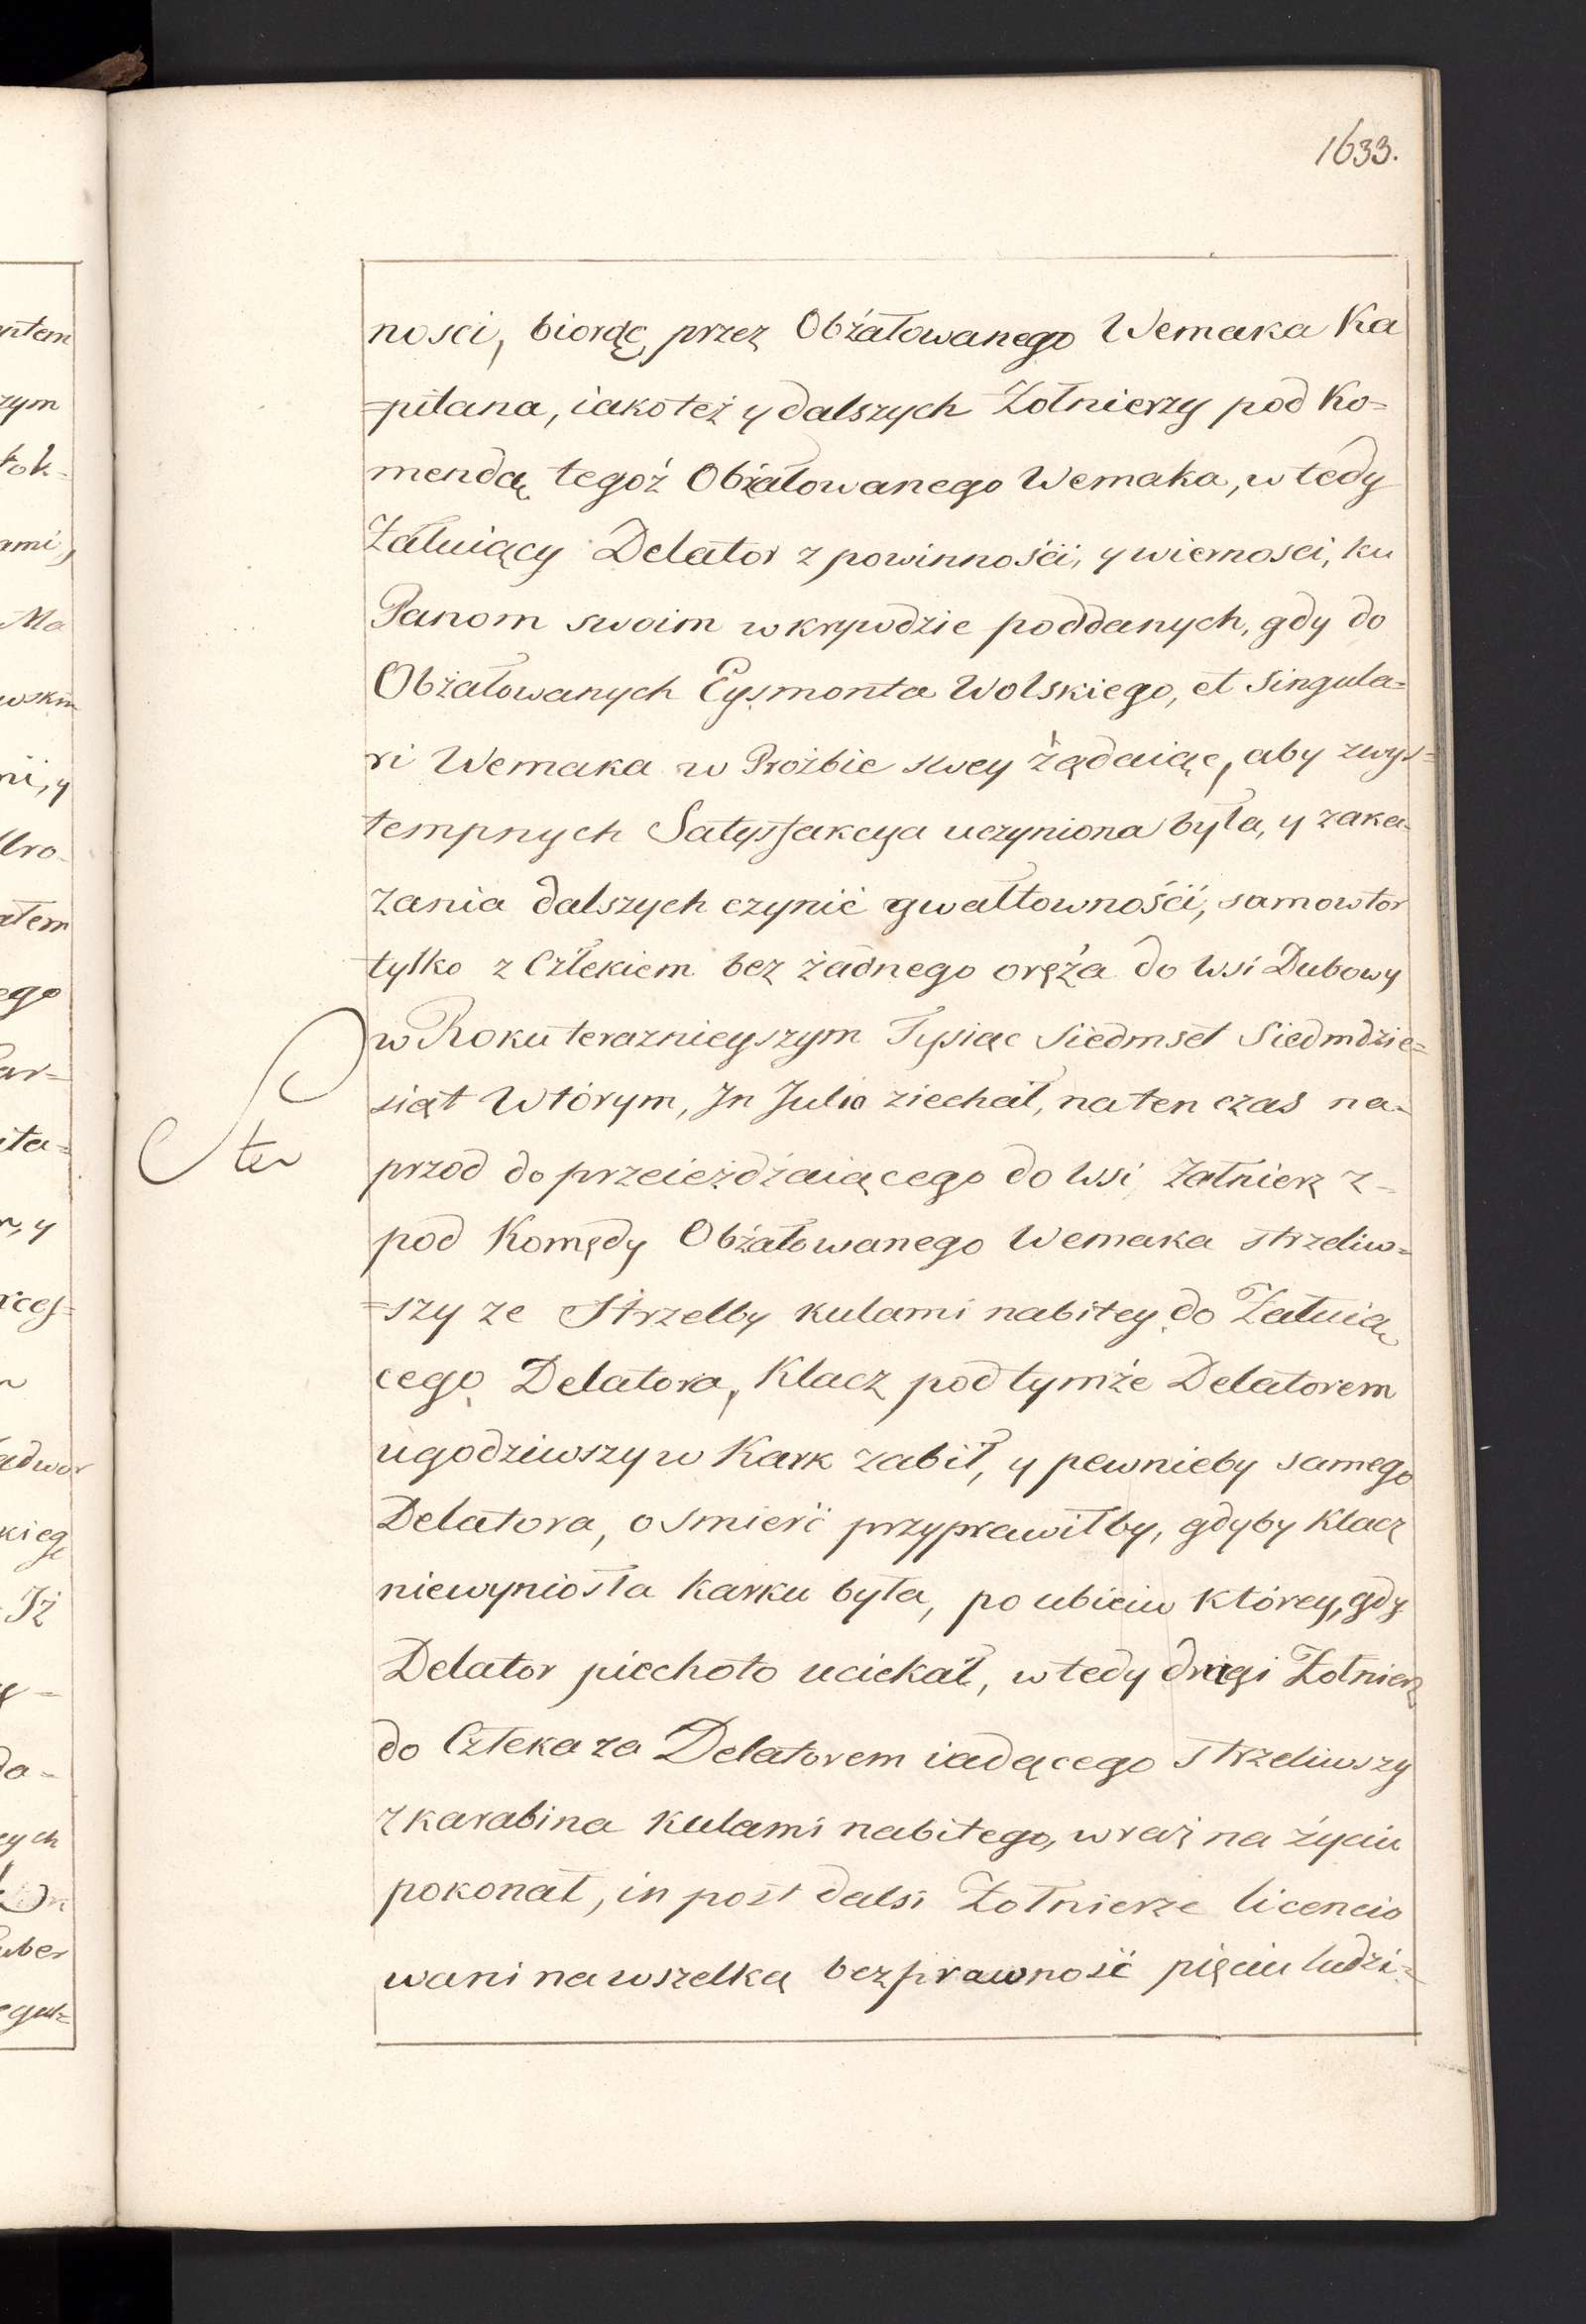 1633.
nosci, biorąc, przez Obżałowanego Wemaka Ka
=pitana, iakoteż y dalszych Zołnierzy pod Ko=
mendą tegoż Obżałowanego Wemaka, wtedy
Załuiący Delator z powinnośći, y wiernosci, ku
Panom swoim wkrywdzie poddanych, gdy do
Obżałowanych Eysmonta Wolskiego, et Singula=
ri Wemaka w Prożbie swey żądaiąc, aby zwys=
tempnych Satysfakcya uczyniona była, y zaka-
zania dalszych czynić gwałtownośći, samowtor
tylko z Człekiem bez żadnego oręża do Wsi Dubowy
w Roku teraznieyszym Tysiąc Siedmset Siedmdzie=
siąt Wtórym, Jn Julio ziechał, naten czas na-
przod do przeieżdżaiącego do Wsi Załnierz z-
pod Komędy Obżałowanego Wemaka strzeliw=
=szy ze Strzelby kulami nabitey do Załuią
cego Delatora, Klacz pod tymże Delatorem
ugodziwszy w Kark zabił, y pewnieby samego
Delatora, o smierć przyprawiłby, gdyby Klacz
niewyniosła karku była, po ubiciu Którey, gdy
Delator piechoto uciekał, wtedy drugi Zołnierz
do Człeka za Delatorem iadącego strzeliwszy
z karabina kulami nabitego, wraz na życiu
pokonał, in post dalsi Zołnierze licencio
wani na wszelką bezprawność pięciu ludzi=
ptem
zym
tok-
ami,
Ma
wskim
ni, y
atem
ego
ar-
ita=
y
Jż
da-
ych
uber